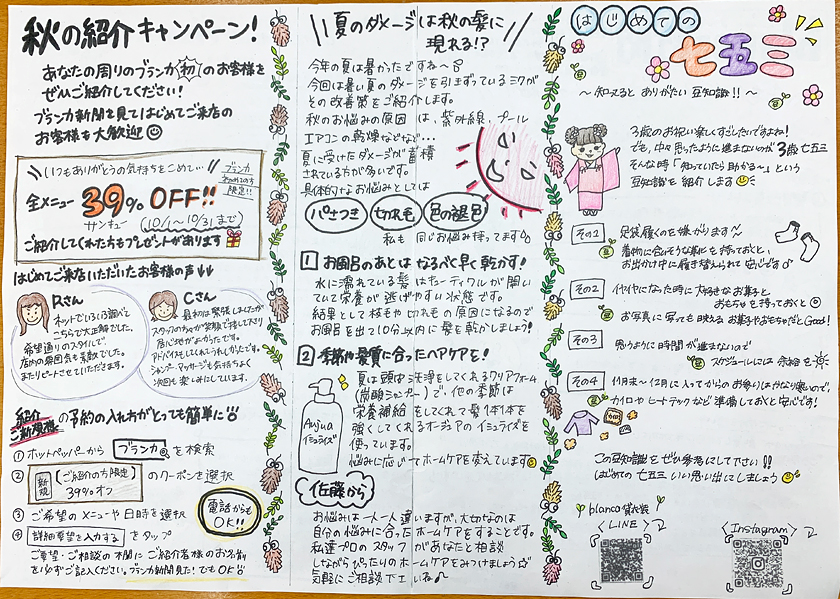 秋の紹介キャンペーン!
あなたの周りのブランカ初のお客様を
ぜひご紹介してください!
ブランカ新聞を見てはじめてご来店の
お客様も大歓迎
いつもありがとうの気持ちをこめて…
ブランカ
初めての方
限定!!
全メニュー 39% OFF!!
サンキュー (10/1~10/31まで)
ご紹介してくれた方もプレゼントがあります
はじめてご来店いただいたお客様の声↓↓
Rさん
ネットでいろいろ調べて
こちらで大正解でした。
希望通りのスタイルで
店内の雰囲気も素敵でした。
またリピートさせていただきます。
Cさん
最初は緊張しましたが
スタッフの方々が笑顔で接して下さり
居心地がよかったです。
アドバイスもしてくれてうれしかったです。
シャンプー、マッサージも気持ちよく
次回も楽しみにしています。
紹介
ご新規様の予約の入れ方がとっても簡単に!!
① ホットペッパーから ブランカ を検索
② 新規 【ご紹介の方限定】
39%オフ
のクーポンを選択
③ ご希望のメニューや日時を選択
④ 詳細要望を入力する をタップ
ご要望・ご相談の欄に ご紹介者様のお名前
を必ずご記入ください。ブランカ新聞見た!でもOK
電話からも
OK!!
夏のダメージは秋の髪に
現れる!?
今年の夏は暑かったですね~
今回は暑い夏のダメージを引きずっているミワが
その改善策をご紹介します。
秋のお悩みの原因は、紫外線、プール
エアコンの乾燥などなど…
夏に受けたダメージが蓄積
されている方が多いです。
具体的なお悩みとしては
パサつき 切れ毛 色の褪色
私も同じお悩み持ってます
1 お風呂のあとは なるべく早く乾かす!
水に濡れている髪はキューティクルが開い
ていて栄養が逃げやすい状態です。
結果として枝毛や切れ毛の原因になるので
お風呂を出て10分以内に髪を乾かしましょう!
2 季節や髪質に合ったヘアケアを!
夏は頭皮を洗浄をしてくれるクリアフォーム
(炭酸シャンプー)で、他の季節は
栄養補給をしてくれて髪1本1本を
強くしてくれるオージュアのイミュライズを
使っています。
悩みに応じてホームケアを変えています
Aujua
イミュライズ
佐藤から
お悩みは一人一人違いますが、大切なのは
自分の悩みに合ったホームケアをすることです。
私達プロのスタッフがあなたと相談
しながらぴったりのホームケアをみつけましょう
気軽にご相談下さいね
はじめての
七五三
~知ってると ありがたい 豆知識!!~
3歳のお祝い楽しくすごしたいですよね!
でも、中々思ったように進まないのが3歳七五三
そんな時「知っていたら助かる~」という
豆知識を紹介します
その1 足袋履くのを嫌がります
着物に合いそうな靴下を持っておくと、
お出かけ中に履き替えられて安心です
その2 イヤイヤになった時に大好きなお菓子と
おもちゃを持っておくと◎
お写真に写っても映えるお菓子やおもちゃだとGood!
その3 思うように時間が進まないので
スケジュールには余裕を
その4 11月末~12月に入ってからのお参りはかなり寒いので!
カイロやヒートテックなど準備しておくと安心です!
この豆知識をぜひ参考にして下さい!!
はじめての七五三いい思い出にしましょう
blanca 貸衣裳
〈LINE〉
〈Instagram〉